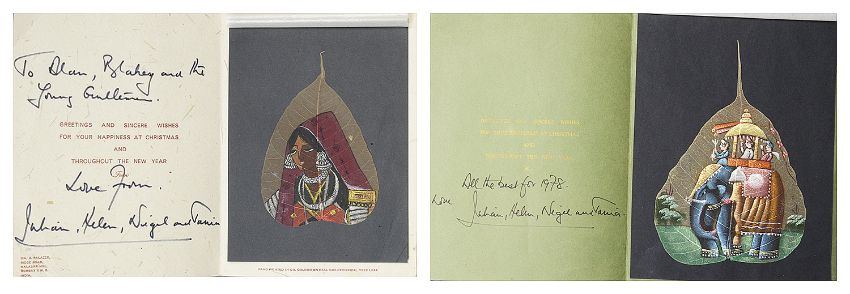 To Alan, Blakey and the
Young Gentlemen.
GREETINGS AND SINCERE WISHES
FOR YOUR HAPPINESS AT CHRISTMAS
AND
THROUGHOUT THE NEW YEAR
From
Love from
Julian, Helen, Nigel and Tania
RIDGE ROAD,
MALABAR HILL,
INDIA.
GREETINGS AND SINCERE WISHES
FOR YOUR HAPPINESS AT CHRISTMAS
AND
THROUGHOUT THE NEW YEAR
All the best for 1978.
Love Julian, Helen, Nigel and Tania